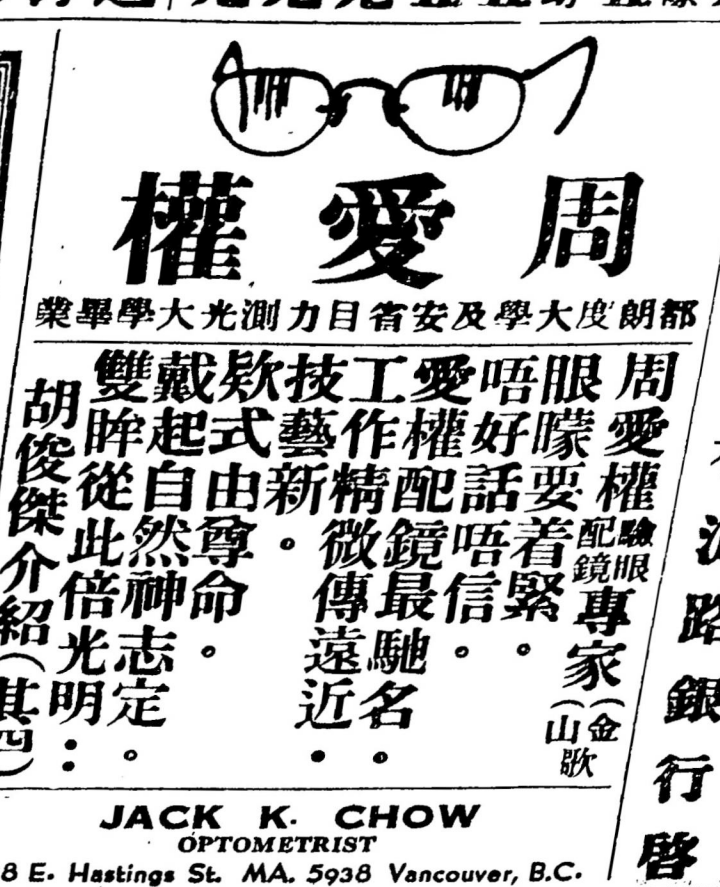 周愛權
都朗度大學及安省目力測光大學畢業
周愛權驗眼配鏡專家(金山歌)
眼矇要着緊。
唔好話唔信。
愛權配鏡最馳名。
工作精微傳遠近。
技藝新。
欵式由尊命。
戴起自然神志定。
雙眸從此倍光明:
胡俊傑介紹(其四)
JACK K. CHOW
OPTOMETRIST
8 E. Hastings St. MA. 5938 Vancouver, B.C.
路銀行啓